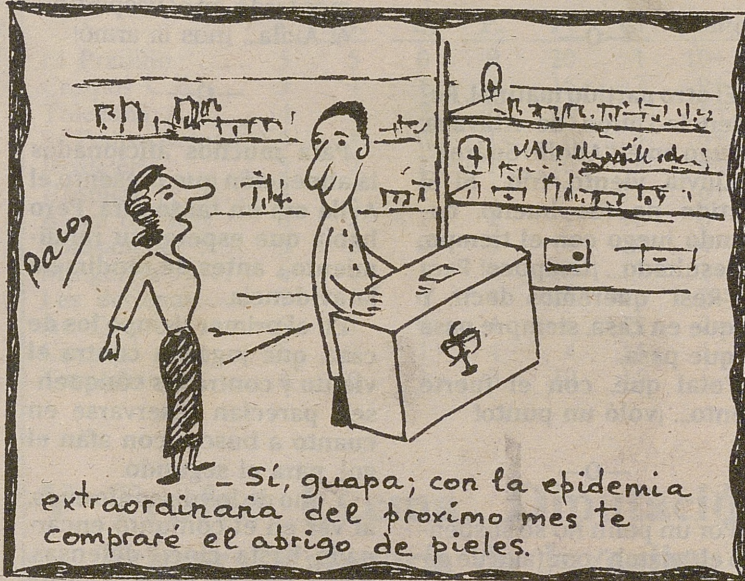 Paco
– Sí, guapa; con la epidemia
extraordinaria del proximo mes te
compraré el abrigo de pieles.